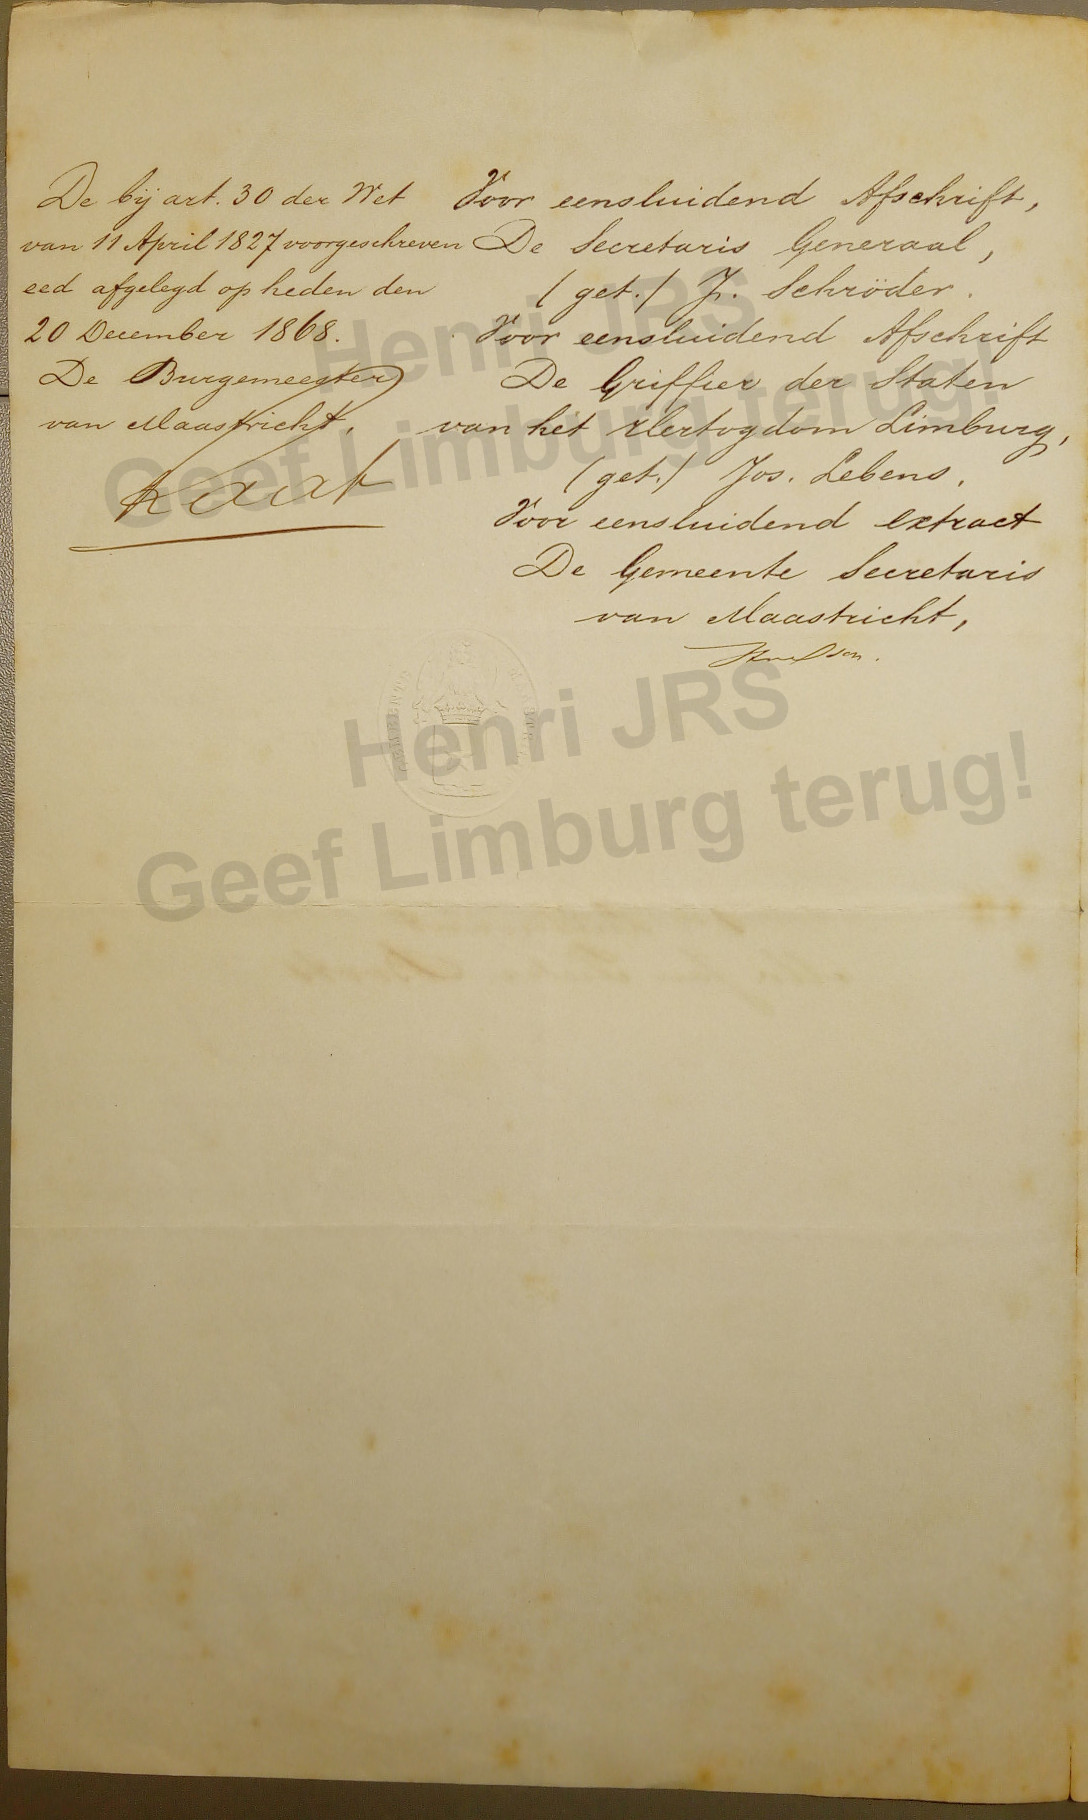 De bij art. 30 der Wet
van 11 April 1827 voorgeschreven
eed afgelegd op heden den
20 December 1868.
De Burgemeester
van Maastricht,
Voor eensluidend Afschrift,
De Secretaris Generaal,
(get.) J. Schröder.
Voor eensluidend Afschrift
De Griffier der Staten
van het Hertogdom Limburg,
(get.) Jos. Lebens.
Voor eensluidend extract
De Gemeente Secretaris
van Maastricht,
Henri JRS
Geef Limburg terug!
Henri JRS
Geef Limburg terug!